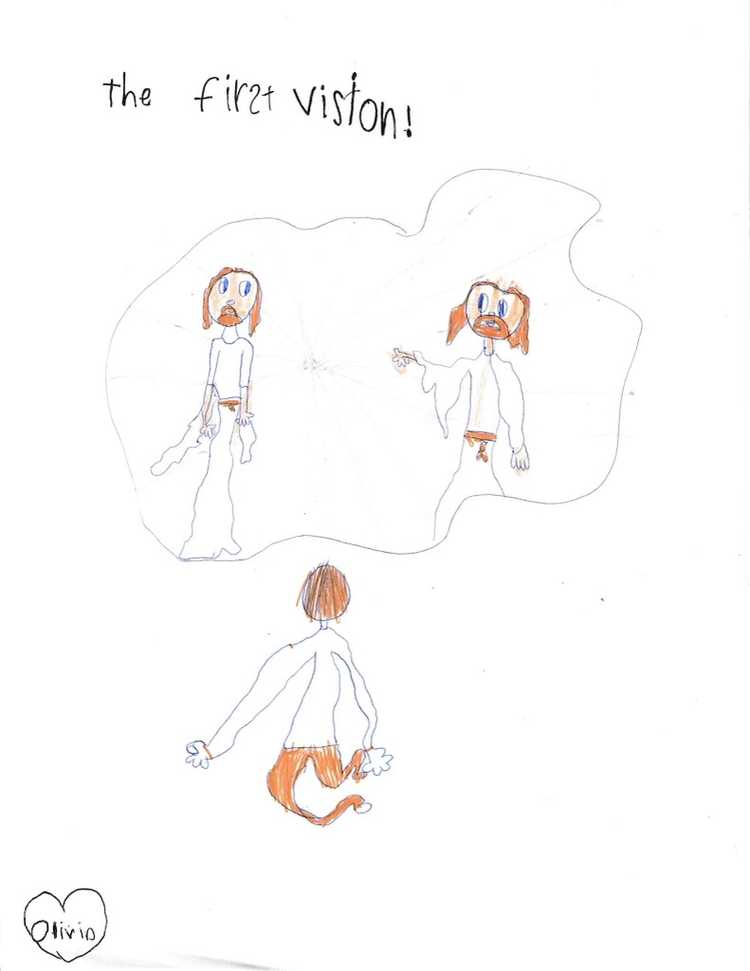 the first vision!
Olivia